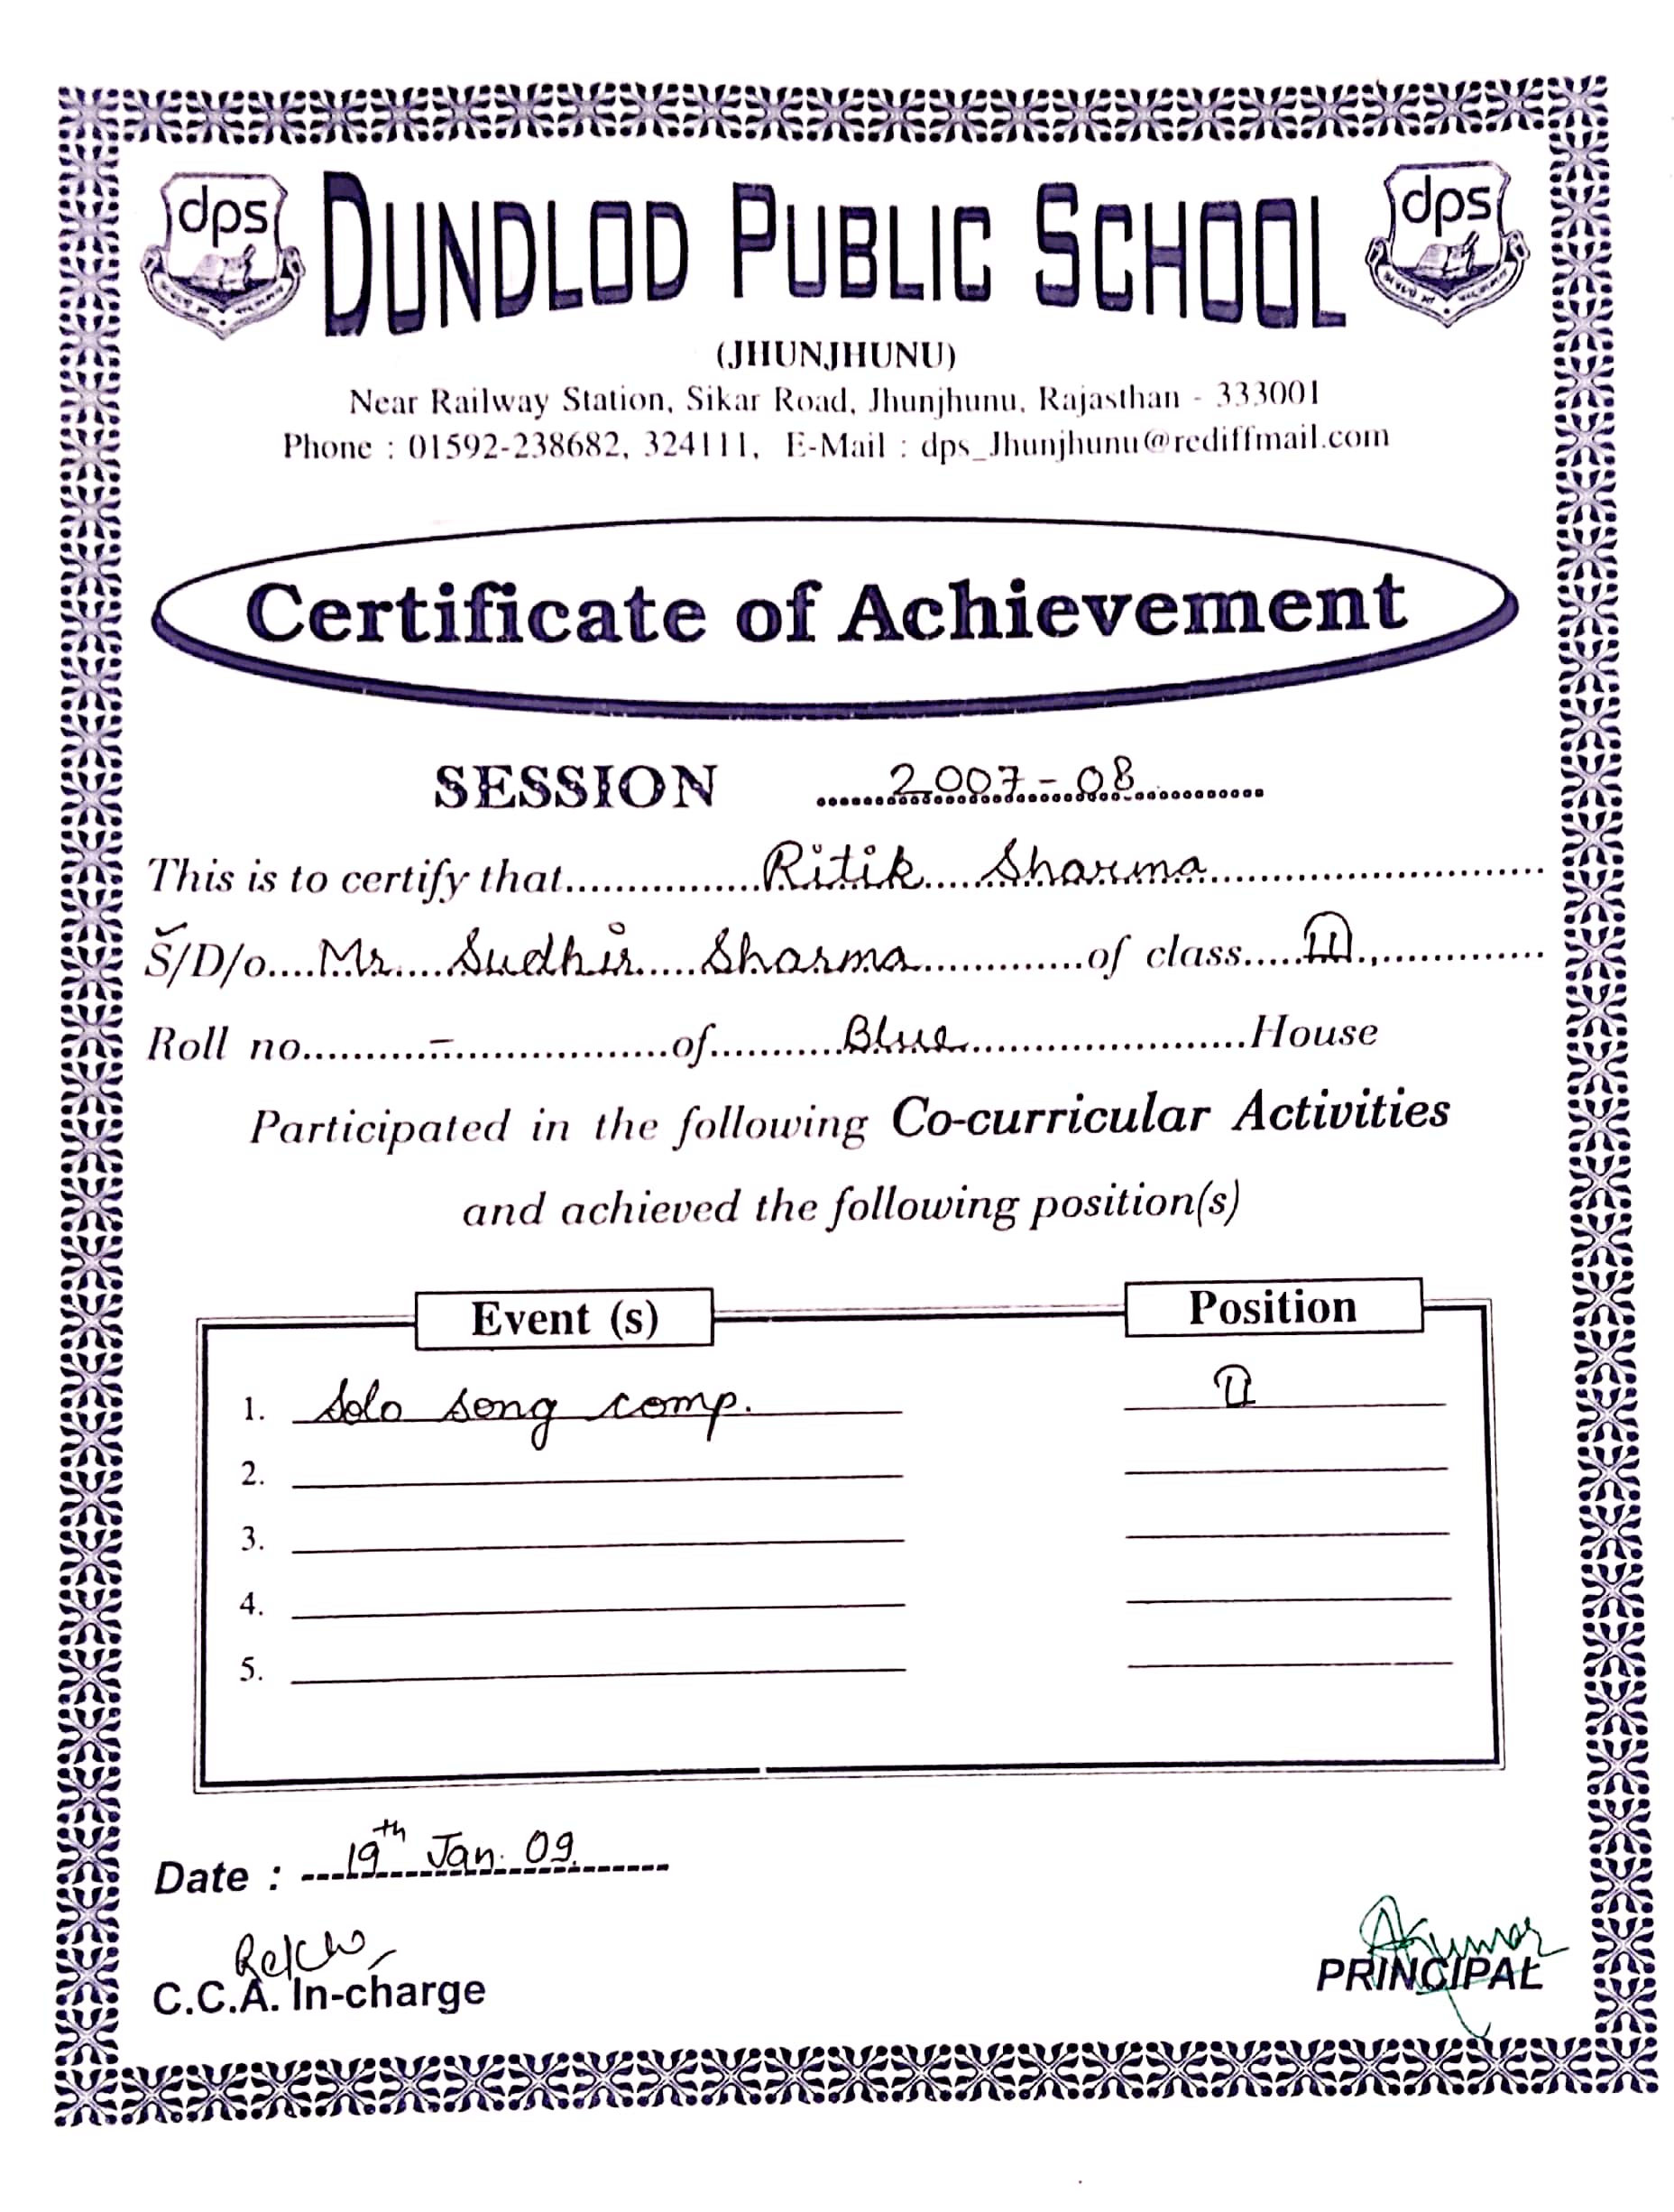 dps DUNDLOD PUBLIC SCHOOL dps
(JHUNJHUNU)
Near Railway Station, Sikar Road, Jhunjhunu, Rajasthan - 333001
Phone : 01592-238682, 324111, E-Mail : dps_Jhunjhunu@rediffmail.com
Certificate of Achievement
SESSION 2007-08
This is to certify that Ritik Sharma
S/D/o Mr. Sudhir Sharma of class III
Roll no. - of Blue House
Participated in the following Co-curricular Activities
and achieved the following position(s)
Event (s) Position
1. Solo song comp. II
2.
3.
4.
5.
Date : 19th Jan. 09.
C.C.A. In-charge
AKumar
PRINCIPAL